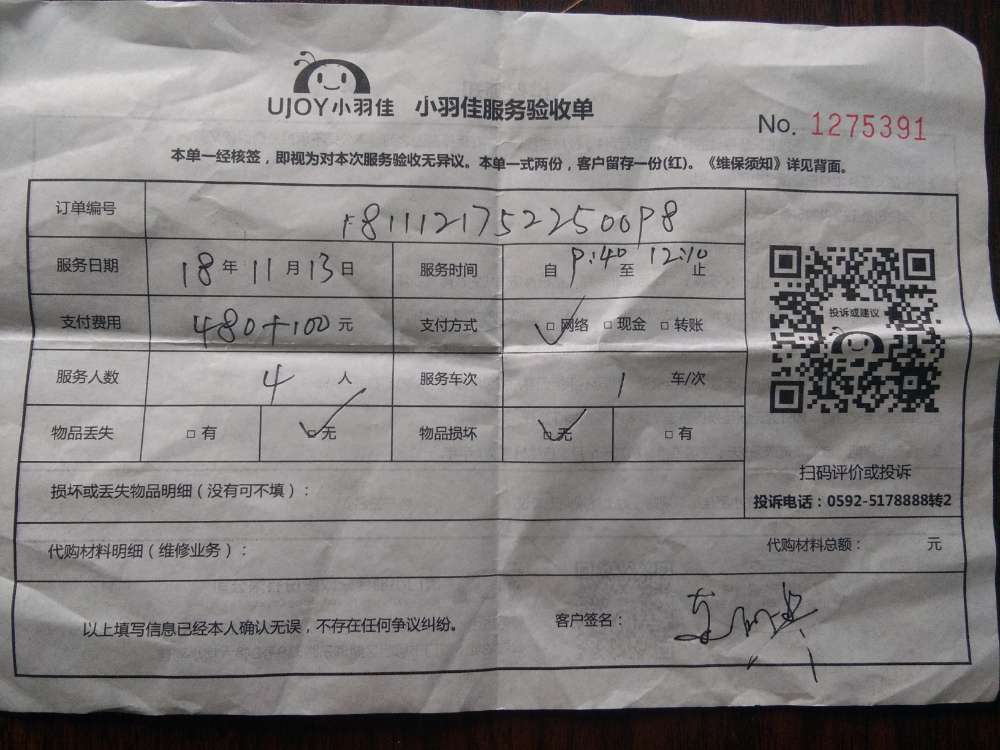 UJOY小羽佳 小羽佳服务验收单
No. 1275391
本单一经核签，即视为对本次服务验收无异议。本单一式两份，客户留存一份(红)。《维保须知》详见背面。
订单编号
服务日期 18 年 11 月 13 日 服务时间 自 9:40 至 12:10 止
支付费用 480+100 元 支付方式 ✓□网络 □现金 □转账
投诉或建议
服务人数 4 人 服务车次 1 车/次
物品丢失 □有 ✓□无 物品损坏 ✓□无 □有
扫码评价或投诉
损坏或丢失物品明细（没有可不填）：
投诉电话：0592-5178888转2
代购材料明细（维修业务）： 代购材料总额： 元
以上填写信息已经本人确认无误，不存在任何争议纠纷。 客户签名：